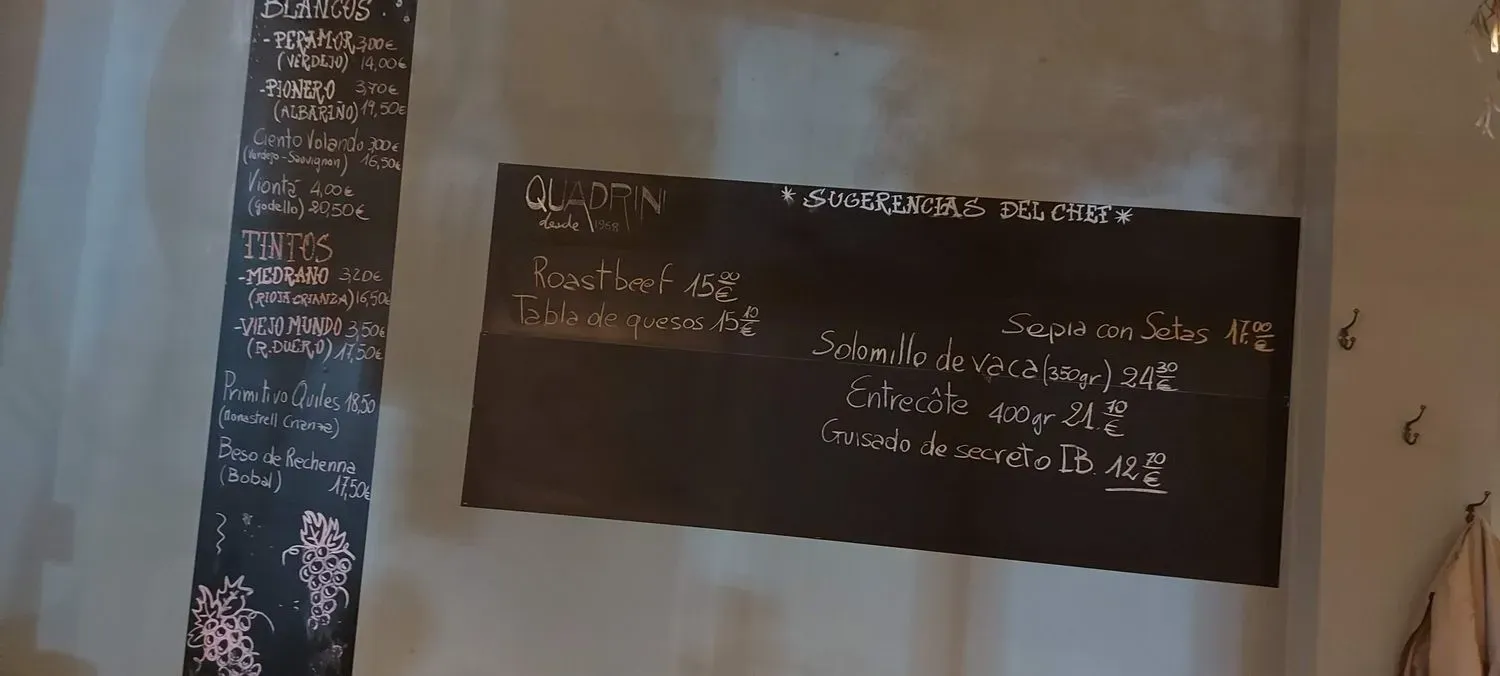 BLANCOS
- PERAMOR 3,00€
(VERDEJO) 14,00€
- PIONERO 3,70€
(ALBARIÑO) 19,50€
Ciento Volando 3,00€
(Verdejo - Sauvignon) 16,50€
Viontá 4,00€
(godello) 20,50€
TINTOS
- MEDRAÑO 3,20€
(RIOJA CRIANZA) 16,50€
- VIEJO MUNDO 3,50€
(R. DUERO) 17,50€
Primitivo Quiles 18,50
(Monastrell Crianza)
Beso de Rechenna
(Bobal) 17,50€
QUADRINI
desde 1968
* SUGERENCIAS DEL CHEF *
Roastbeef 15,00€
Tabla de quesos 15,10€
Sepia con Setas 17,00€
Solomillo de vaca (350gr) 24,30€
Entrecôte 400gr 21,70€
Guisado de secreto IB. 12,70€